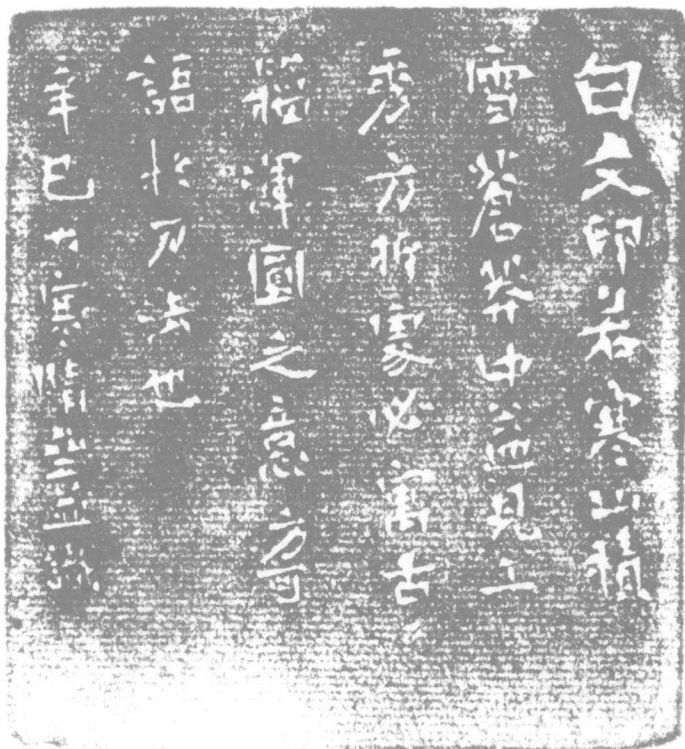 白文印若寒山積
雪蒼莽中益見工
秀方折處必寓古
榴渾圓之意方可
語於刀法也
辛巳